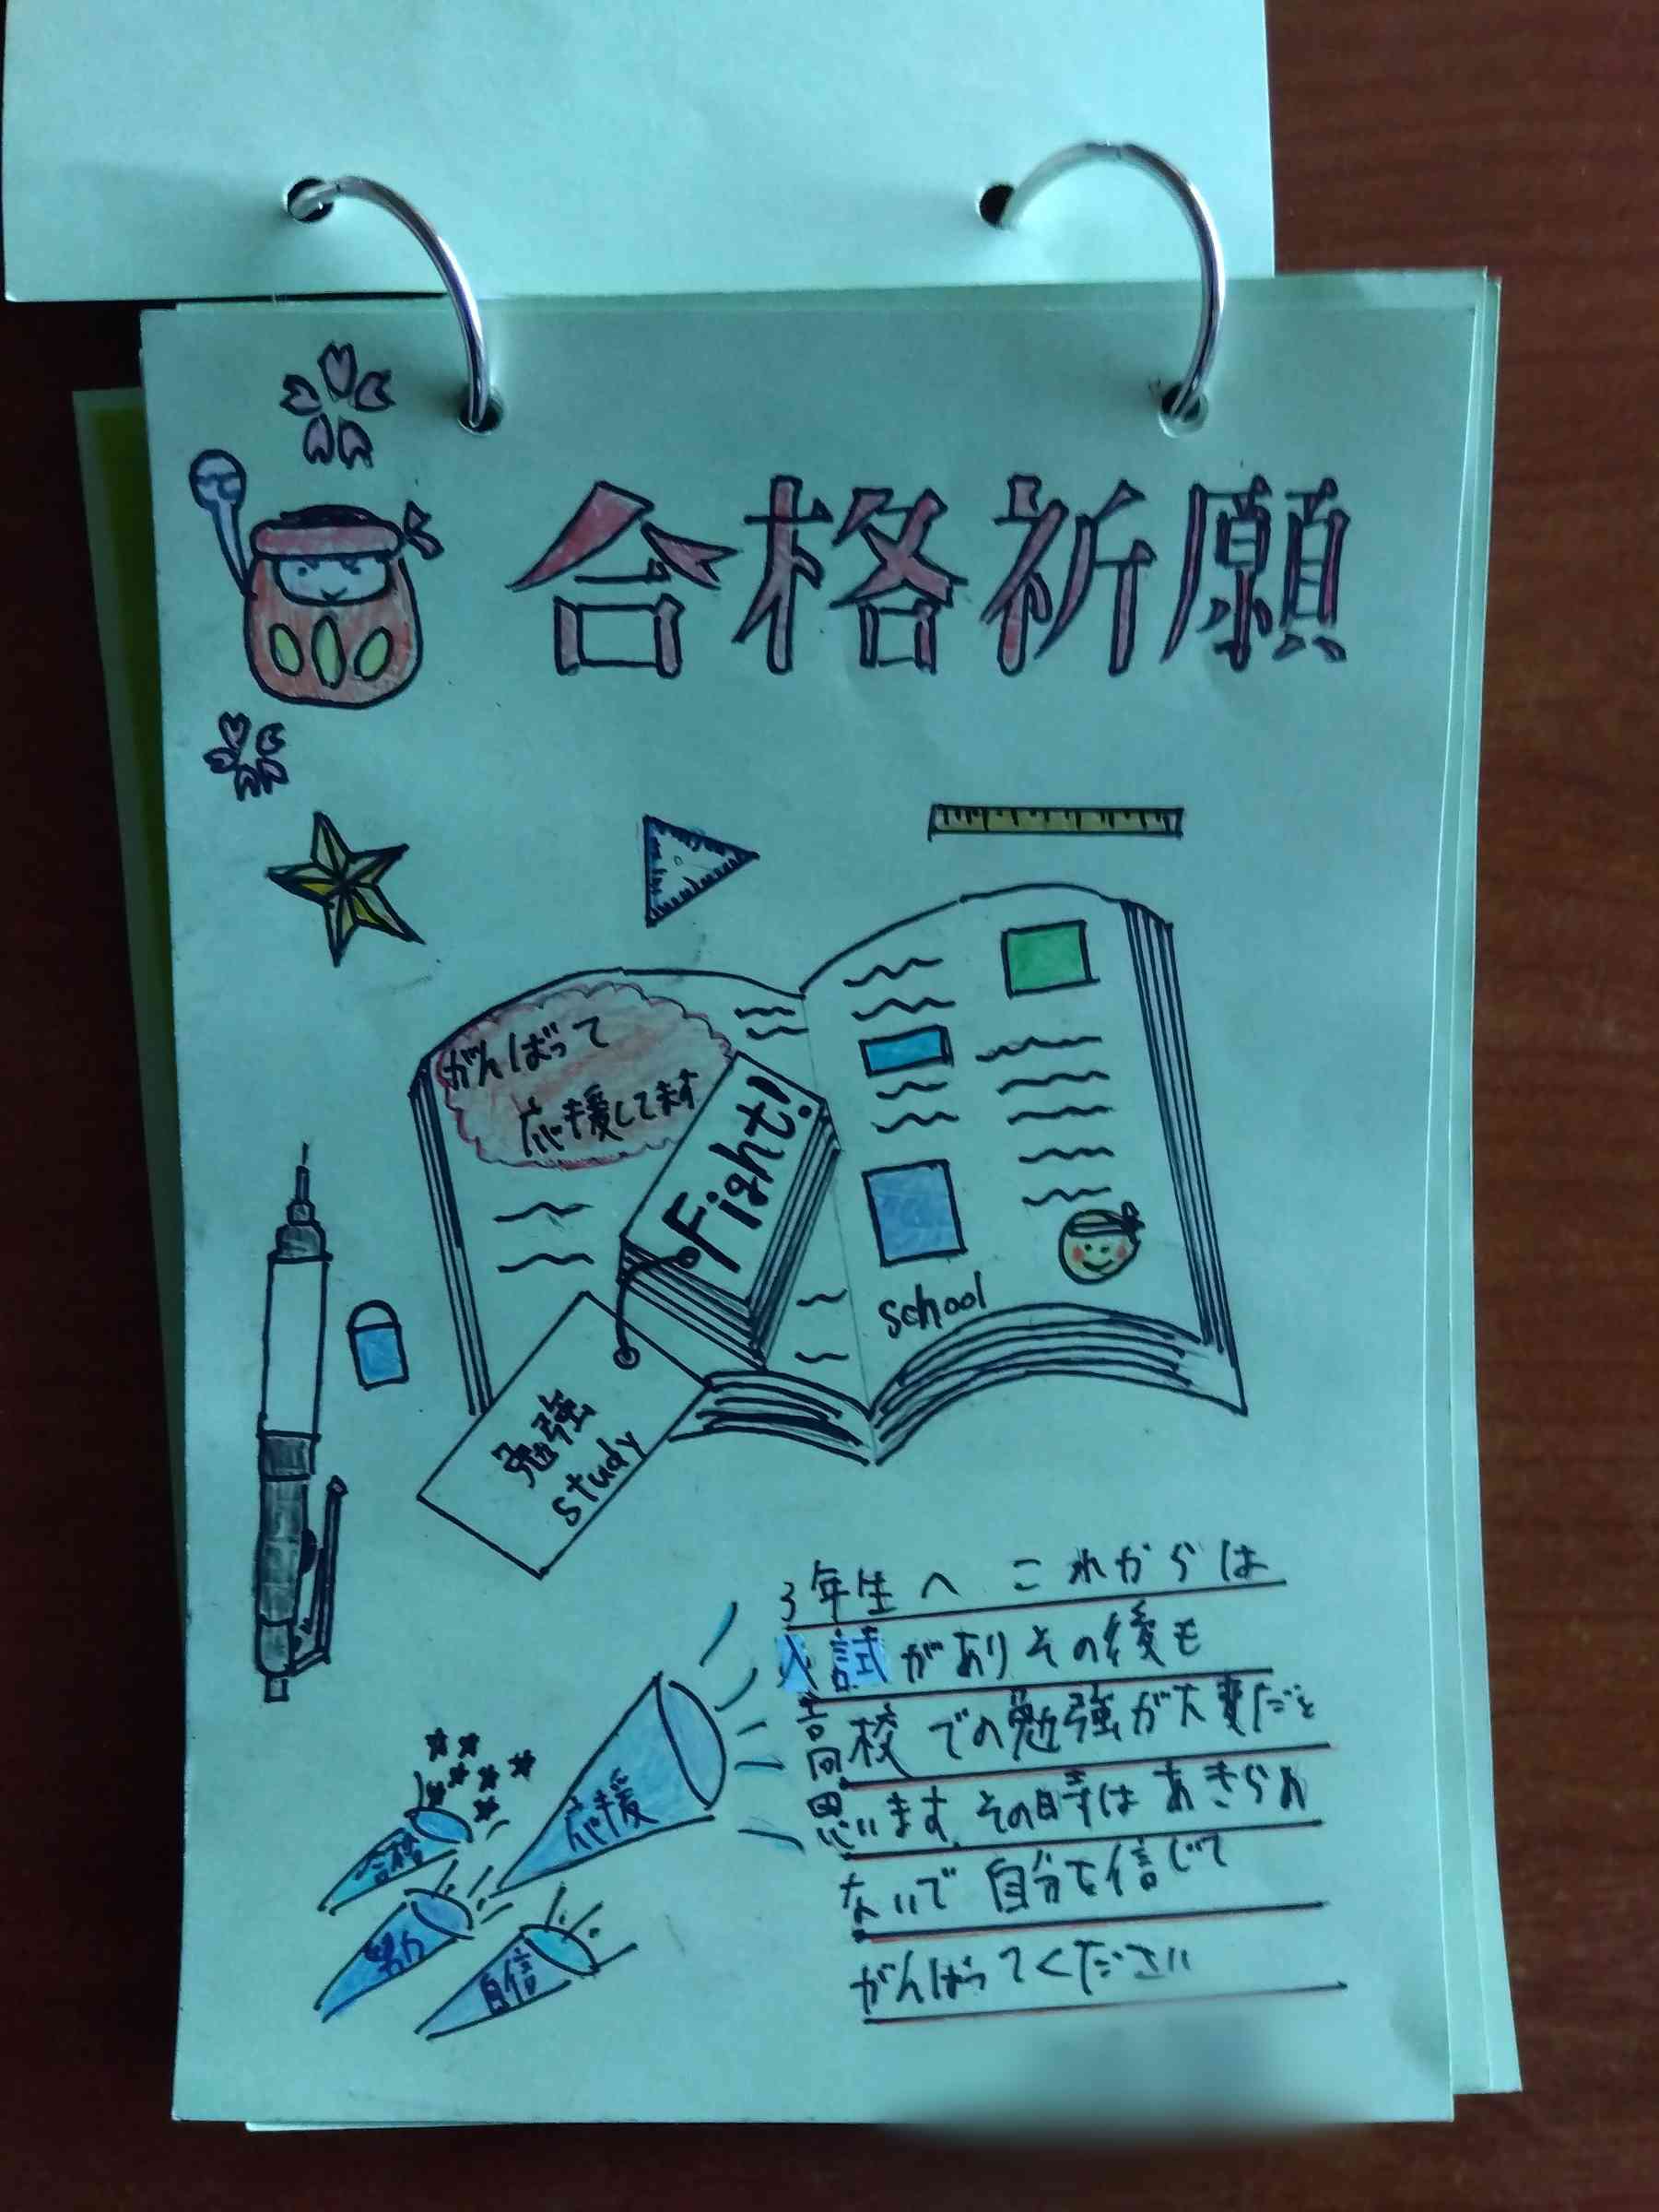 合格祈願
がんばって
応援してます
Fight!
school
勉強
study
3年生へ これからは
入試がありその後も
高校での勉強が大変だと
思います。その時はあきらめ
ないで自分を信じて
がんばってください
応援
合格
努力
自信